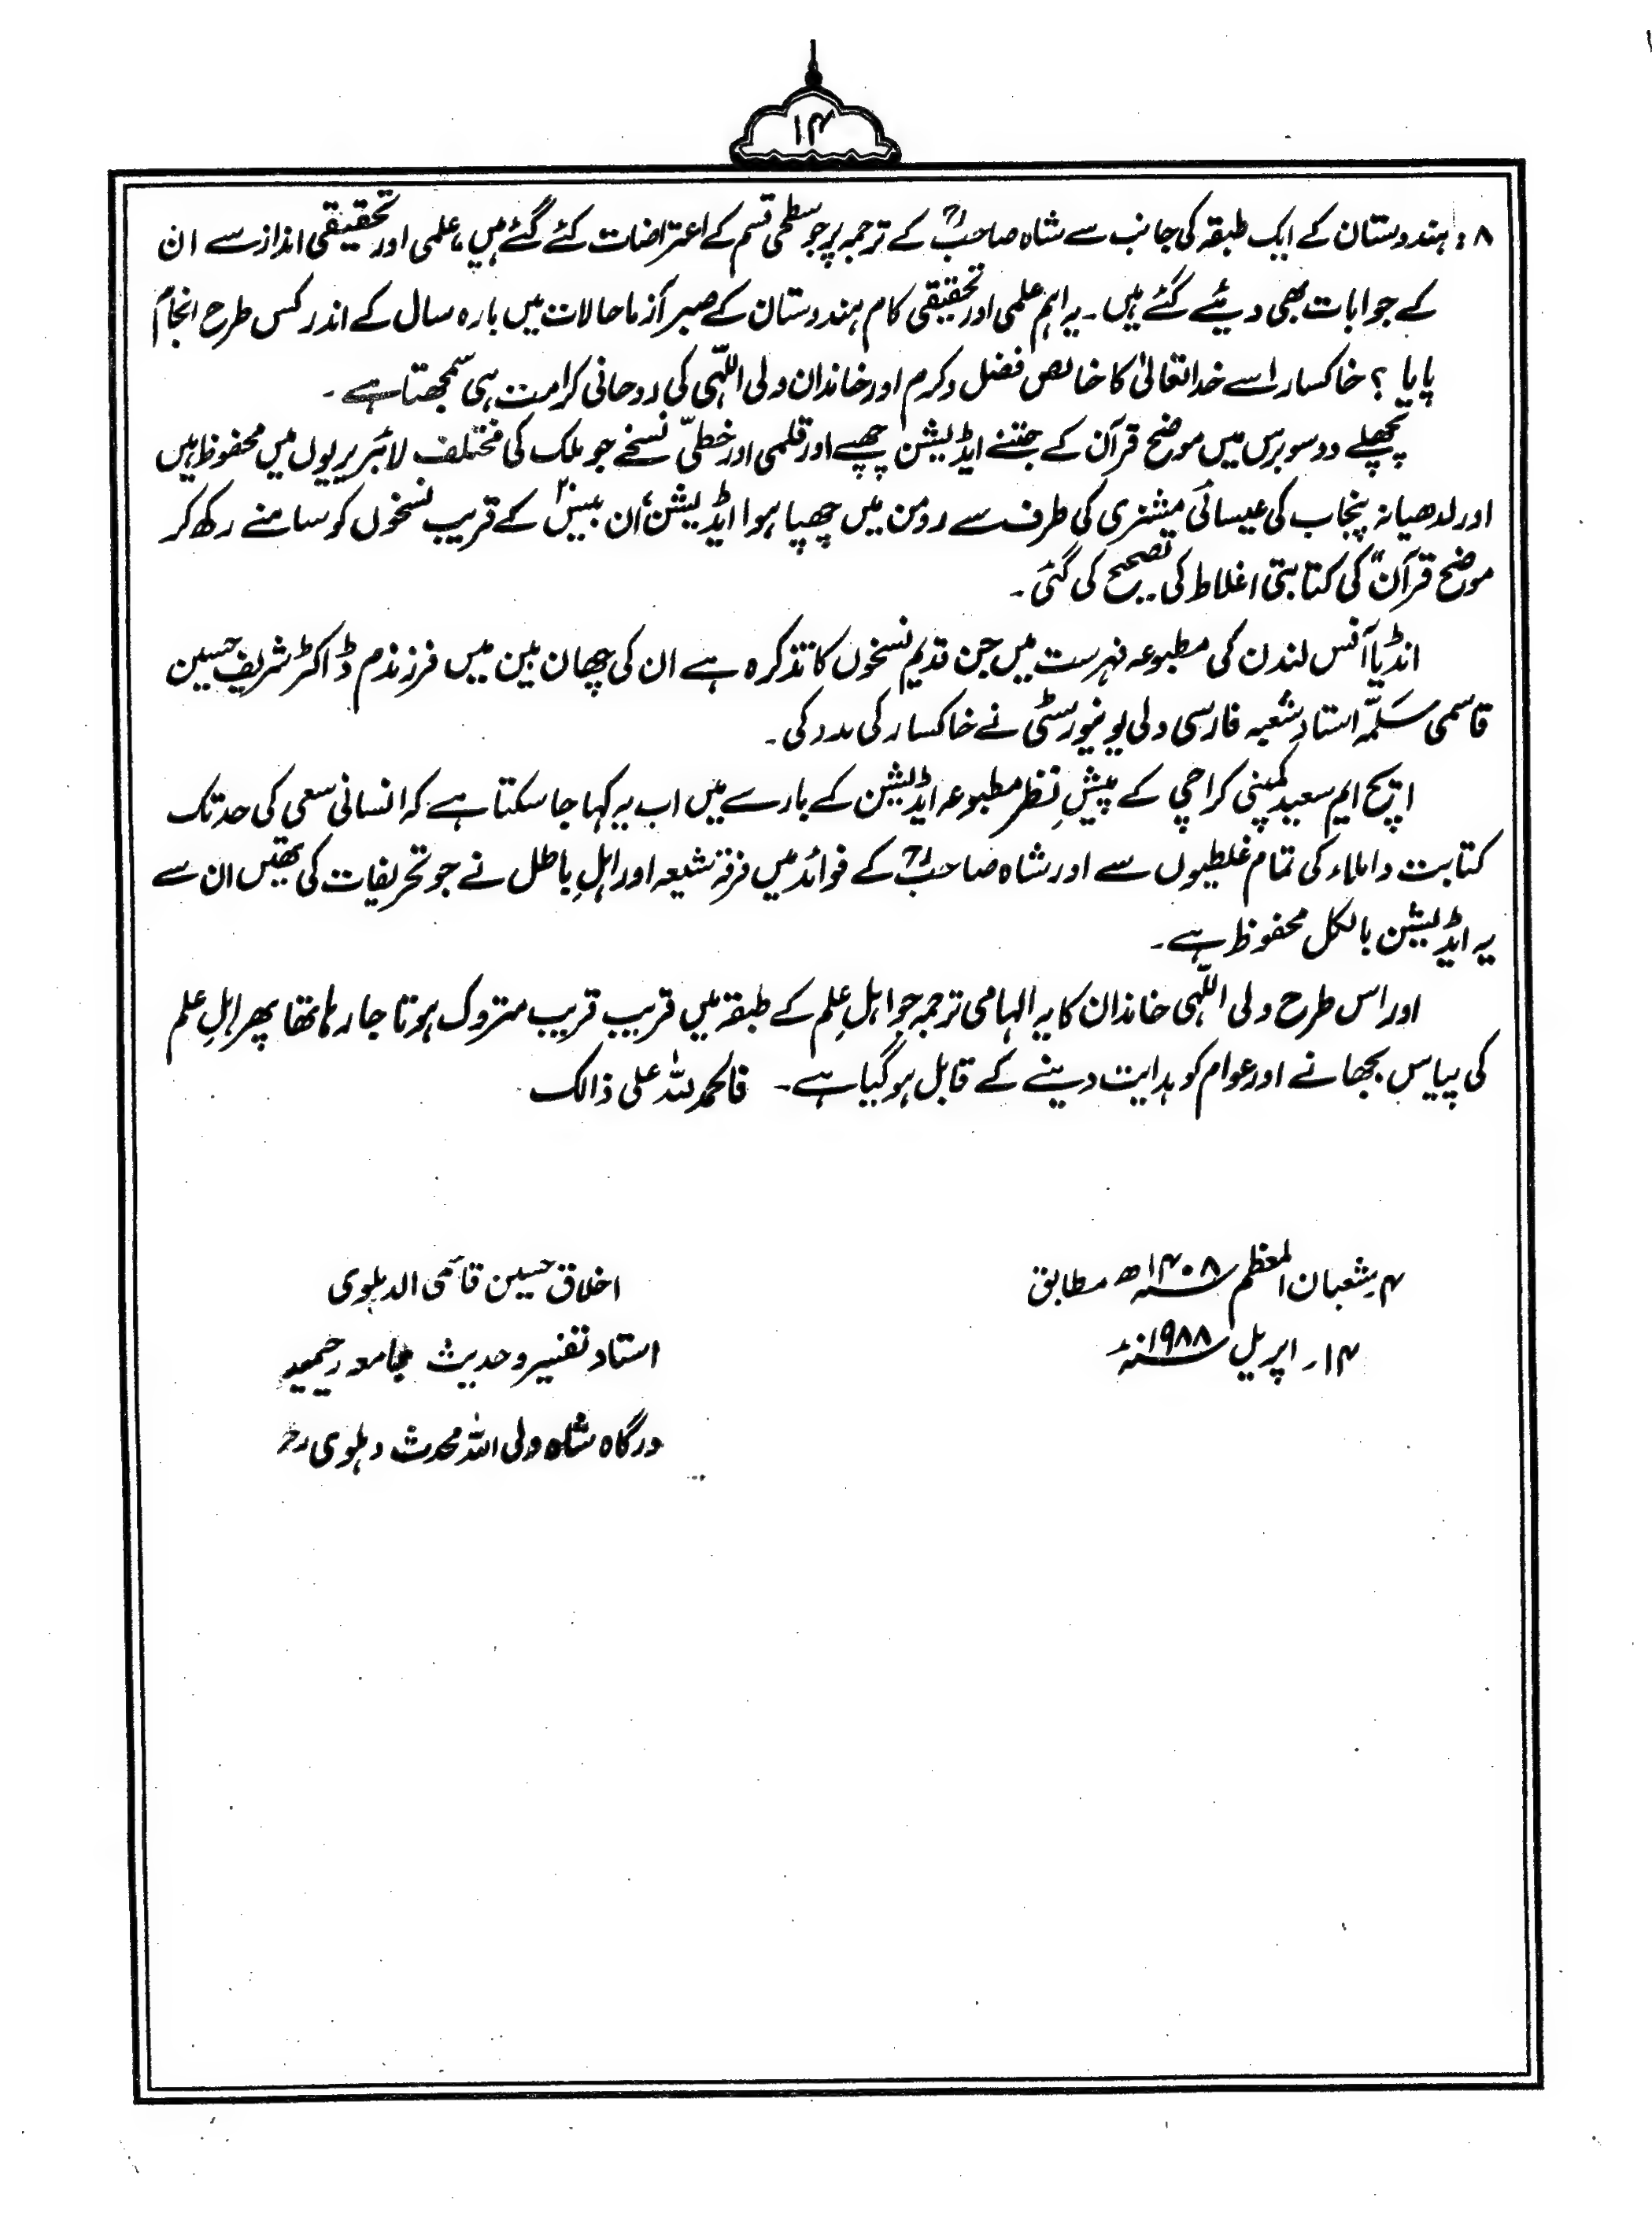 ۱۴
۸ : ہندوستان کے ایک طبقہ کی جانب سے شاہ صاحبؒ کے ترجمہ پر جو سطحی قسم کے اعتراضات کئے گئے ہیں، علمی اور تحقیقی انداز سے ان
کے جوابات بھی دیئے گئے ہیں۔ یہ اہم علمی اور تحقیقی کام ہندوستان کے صبر آزما حالات میں بارہ سال کے اندر کس طرح انجام
پایا ؟ خاکسار اسے خدا تعالیٰ کا خالص فضل وکرم اور خاندان ولی اللّٰہی کی روحانی کرامت ہی سمجھتا ہے ۔
پچھلے دو سو برس میں موضح قرآن کے جتنے ایڈیشن چھپے اور قلمی اور خطیّ نسخے جو ملک کی مختلف لائبریریوں میں محفوظ ہیں
اور لدھیانہ پنجاب کی عیسائی مشنری کی طرف سے رومن میں چھپا ہوا ایڈیشن، ان بیس۲۰ کے قریب نسخوں کو سامنے رکھ کر
موضح قرآن" کی کتابتی اغلاط کی تصحیح کی گئی ۔
انڈیا آفس لندن کی مطبوعہ فہرست میں جن قدیم نسخوں کا تذکرہ ہے ان کی چھان بین میں فرزندم ڈاکٹر شریف حسین
قاسمی سلّمہٗ استاد شعبہ فارسی دلی یونیورسٹی نے خاکسار کی مدد کی ۔
ایچ ایم سعید کمپنی کراچی کے پیشِ نظر مطبوعہ ایڈیشن کے بارے میں اب یہ کہا جا سکتا ہے کہ انسانی سعی کی حد تک
کتابت و املاء کی تمام غلطیوں سے اور شاہ صاحبؒ کے فوائد میں فرقۂ شیعہ اور اہلِ باطل نے جو تحریفات کی تھیں ان سے
یہ ایڈیشن بالکل محفوظ ہے ۔
اور اس طرح ولی اللّٰہی خاندان کا یہ الہامی ترجمہ جو اہلِ علم کے طبقہ میں قریب قریب متروک ہوتا جا رہا تھا پھر اہلِ علم
کی پیاس بجھانے اور عوام کو ہدایت دینے کے قابل ہو گیا ہے ۔ فالحمد للہ علی ذالک
۴ شعبان المعظم سنہ ۱۴۰۸ ھ مطابق
۱۴ ۔ اپریل سنہ ۱۹۸۸ء
اخلاق حسین قاسمی الدہلوی
استاد تفسیر و حدیث جامعہ رحیمیہ
درگاہ شاہ ولی اللہ محدث دہلوی رحؒ